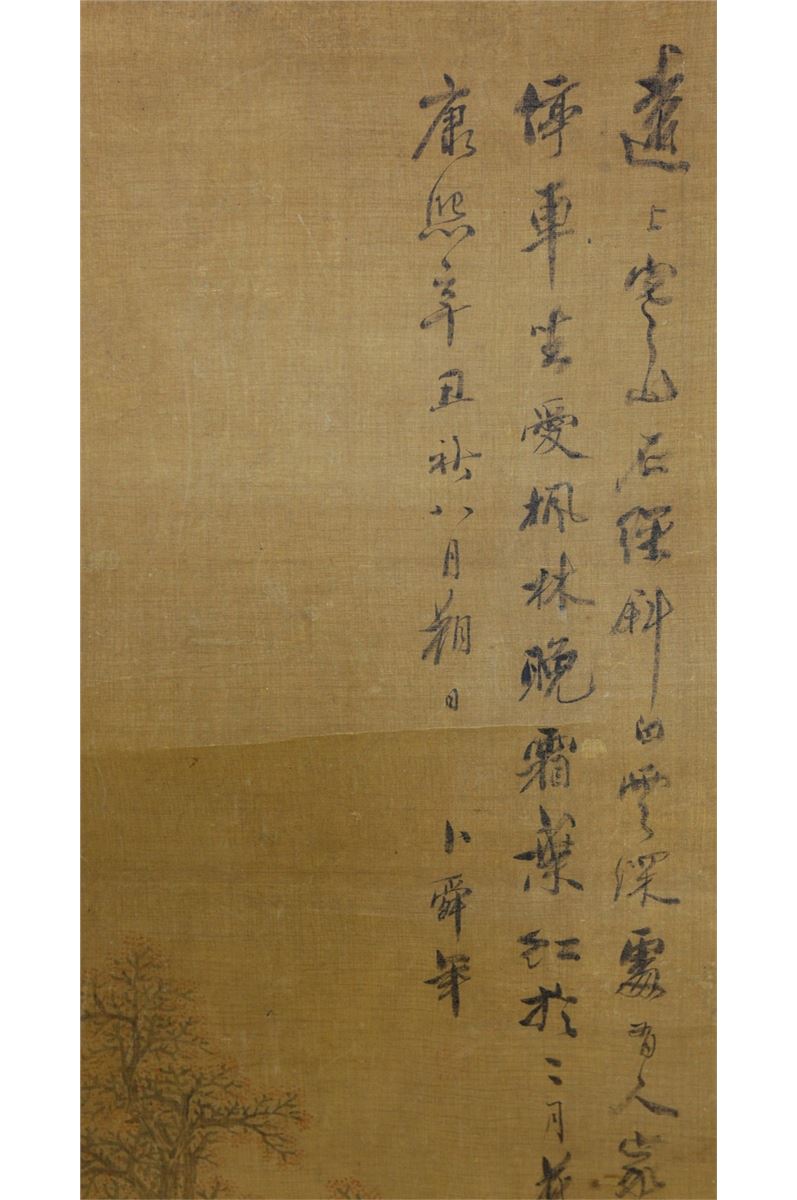 遠上寒山石徑斜白雲深處有人家
停車坐愛楓林晚霜葉紅於二月花
康熙辛丑秋八月朔日　卜舜年